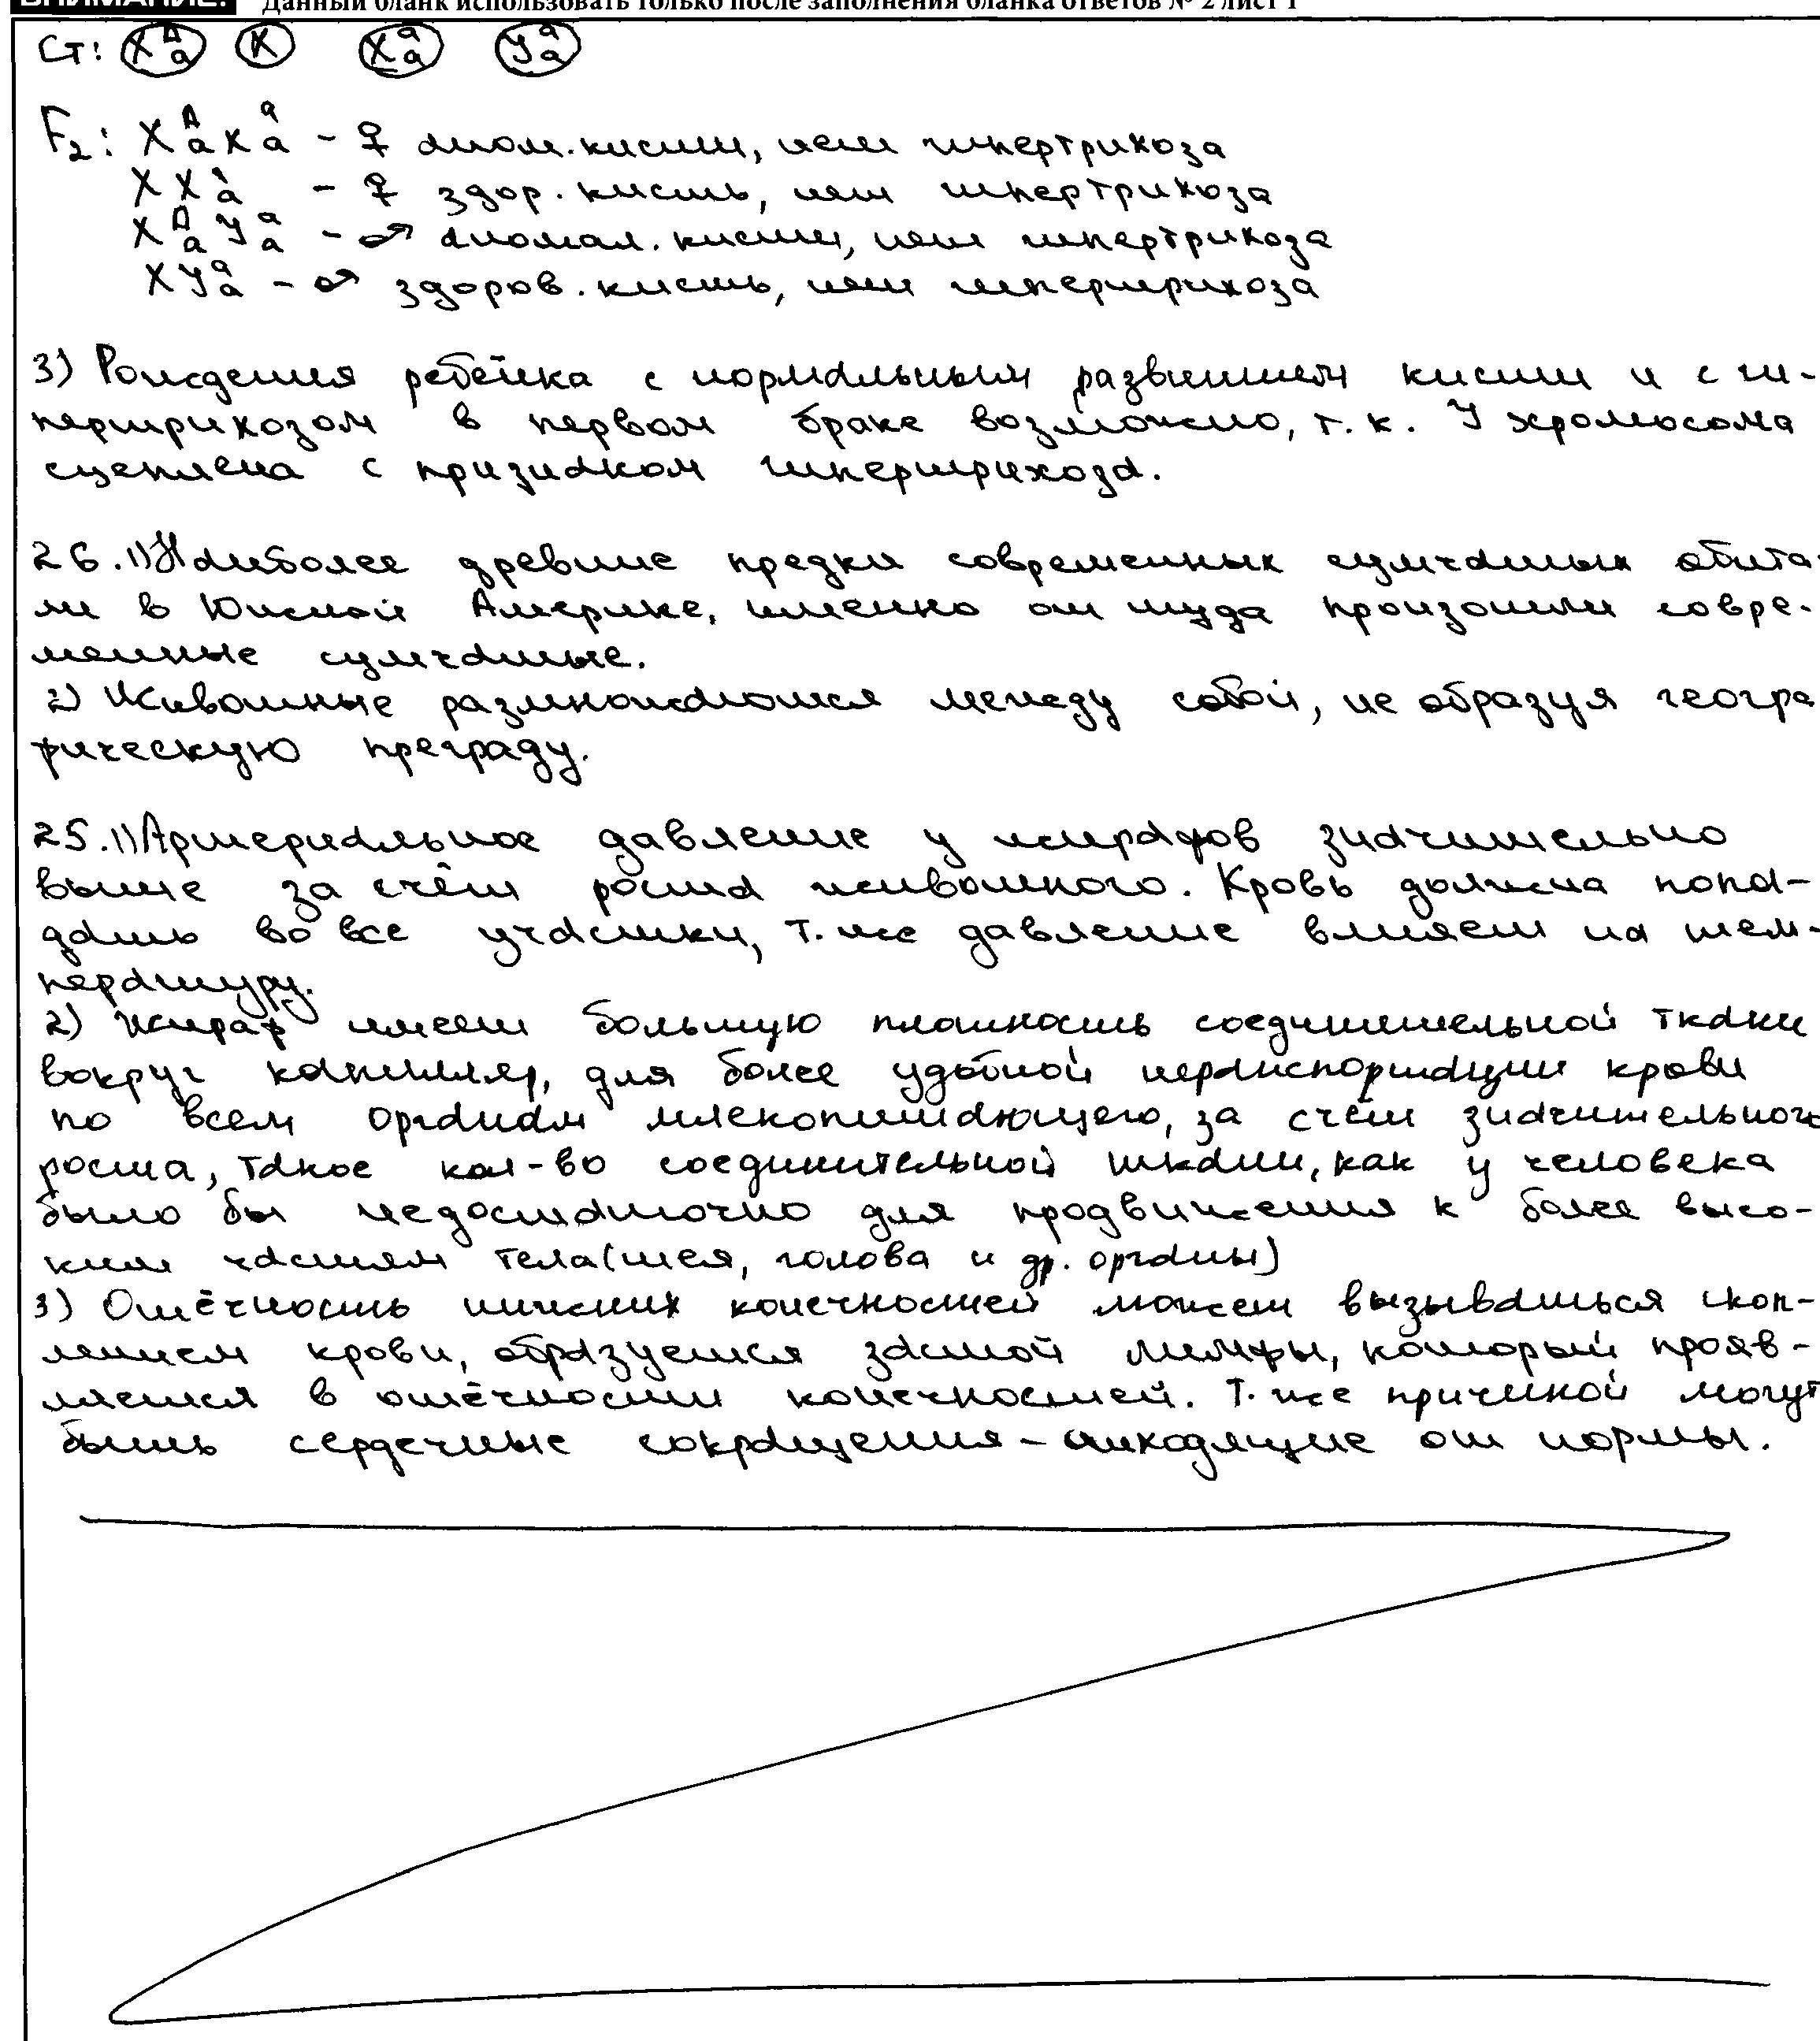 ВНИМАНИЕ! Данный бланк использовать только после заполнения бланка ответов № 2 лист 1
Ст: Xᴬₐ X Xᵃₐ Yᵃₐ
F₂: XᴬₐXᵃₐ - ♀ аном. кисти, нет гипертрихоза
XXᵃₐ - ♀ здор. кисть, нет гипертрихоза
XᴬₐYᵃₐ - ♂ аномал. кисти, нет гипертрихоза
XYᵃₐ - ♂ здоров. кисть, нет гипертрихоза
3) Рождения ребёнка с нормальным развитием кисти и с ги-
пертрихозом в первом браке возможно, т.к. Y хромосома
сцеплена с признаком гипертрихоза.
26. 1) Наиболее древние предки современных сумчатых обита-
ли в Южной Америке, именно от туда произошли совре-
менные сумчатые.
2) Животные размножаются между собой, не образуя геогра
фическую преграду.
25. 1) Артериальное давление у жирафов значительно
выше за счёт роста животного. Кровь должна попа-
дать во все участки, т. же давление влияет на тем-
пературу.
2) Жираф имеет большую плотность соединительной ткани
вокруг капилляр, для более удобной транспортации крови
по всем органам млекопитающего, за счёт значительного
роста, такое кол-во соединительной ткани, как у человека
было бы недостаточно для продвижения к более высо-
ким частям тела (шея, голова и др. органы)
3) Отёчность нижних конечностей может вызываться скоп-
лением крови, образуется застой лимфы, который прояв-
ляется в отёчности конечностей. Т. же причиной могут
быть сердечные сокращения - отходящие от нормы.